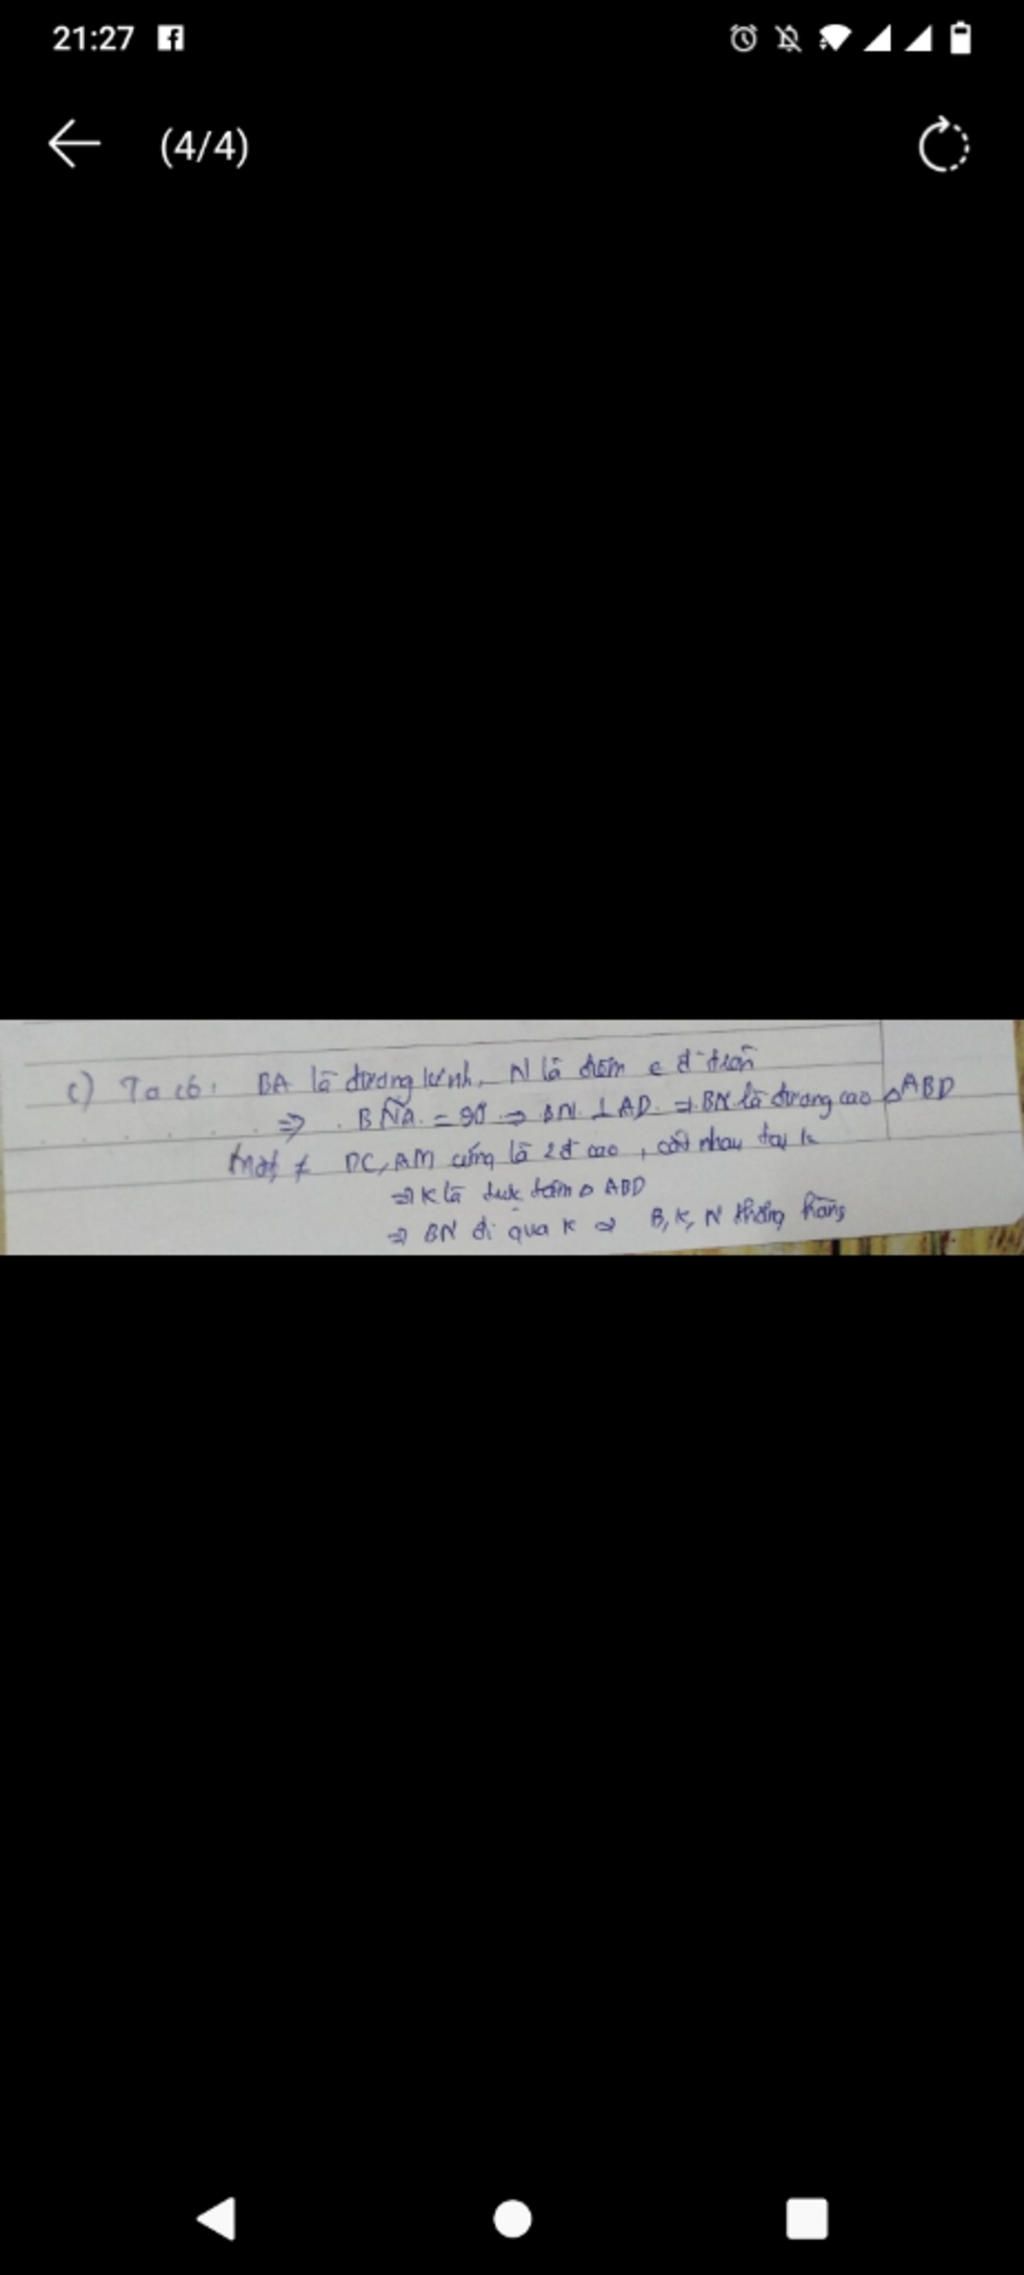 21:27
(4/4)
c) Ta có: BA là đường kính, N là điểm ∈ đ tròn
⇒ BNA = 90 ⇒ BN ⊥ AD ⇒ BN là đường cao △ABD
Mặt ≠ DC, AM cũng là 2 đ cao, cắt nhau tại K
⇒ K là trực tâm △ ABD
⇒ BN đi qua K ⇒ B, K, N thẳng hàng